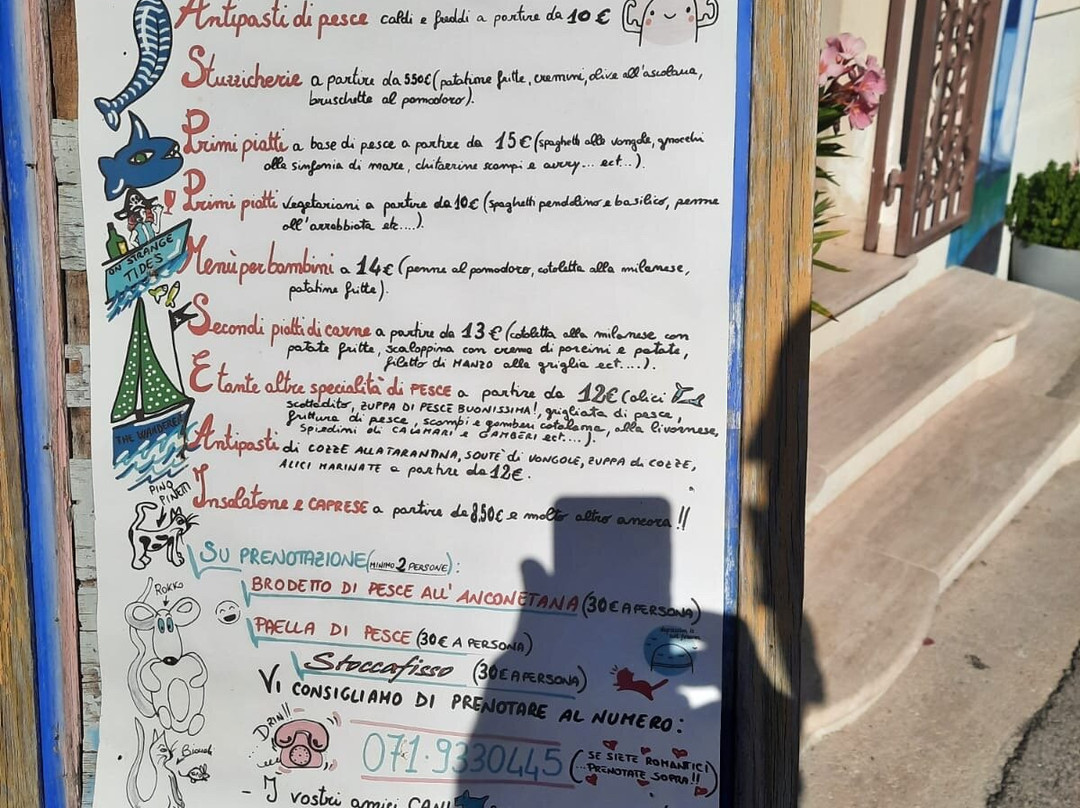 Antipasti di pesce caldi e freddi a partire da 10 €
Stuzzicherie a partire da 5,50€ (patatine fritte, cremini, olive all'ascolana,
bruschette al pomodoro).
Primi piatti a base di pesce a partire da 15 € (spaghetti alle vongole, gnocchi
alla sinfonia di mare, chitarrine scampi e curry... ect...).
Primi piatti vegetariani a partire da 10€ (spaghetti pendolino e basilico, penne
all'arrabbiata etc....).
ON STRANGE
TIDES
Menù per bambini a 14€ (penne al pomodoro, cotoletta alla milanese,
patatine fritte).
Secondi piatti di carne a partire da 13 € (cotoletta alla milanese con
patate fritte, scaloppina con crema di porcini e patate,
filetto di MANZO alla griglia ect....).
E tante altre specialità di PESCE a partire da 12€ (alici
scottadito, ZUPPA DI PESCE BUONISSIMA!, grigliata di pesce,
frittura di pesce, scampi e gamberi catalana, alla livornese,
spiedini di CALAMARI e GAMBERI ect...).
THE WANDERER
Antipasti di COZZE ALLA TARANTINA, SOUTÈ di VONGOLE, ZUPPA di COZZE,
ALICI MARINATE a partire da 12€.
PINO
PINETTI
Insalatone e CAPRESE a partire da 8,50€ e molto altro ancora!!
SU PRENOTAZIONE (MINIMO 2 PERSONE):
BRODETTO DI PESCE ALL'ANCONETANA (30€ A PERSONA)
Rokko
PAELLA DI PESCE (30€ A PERSONA)
Stoccafisso (30€ A PERSONA)
VI CONSIGLIAMO DI PRENOTARE AL NUMERO:
DRIN!!
071.9330445
(SE SIETE ROMANTICI
...PRENOTATE SOPRA!!)
- I vostri amici CANI